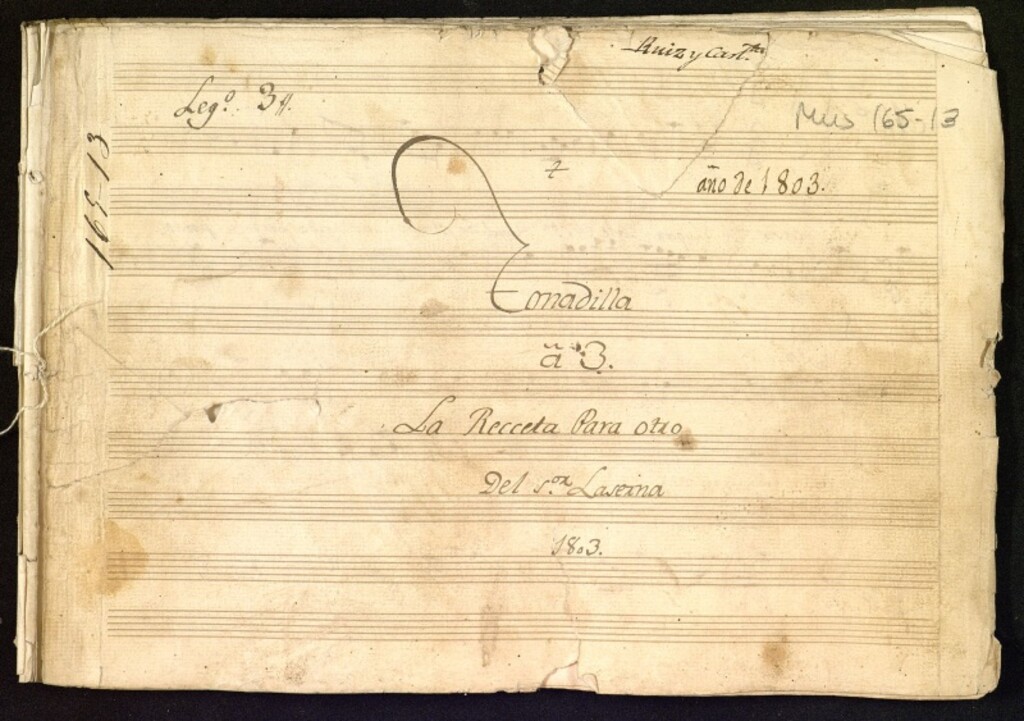 Ruiz y Cast.
Leg.º 3
Mus 165-13
165-13
año de 1803.
Tonadilla
à 3.
La Recceta Para otro
Del s.or Laserna
1803.